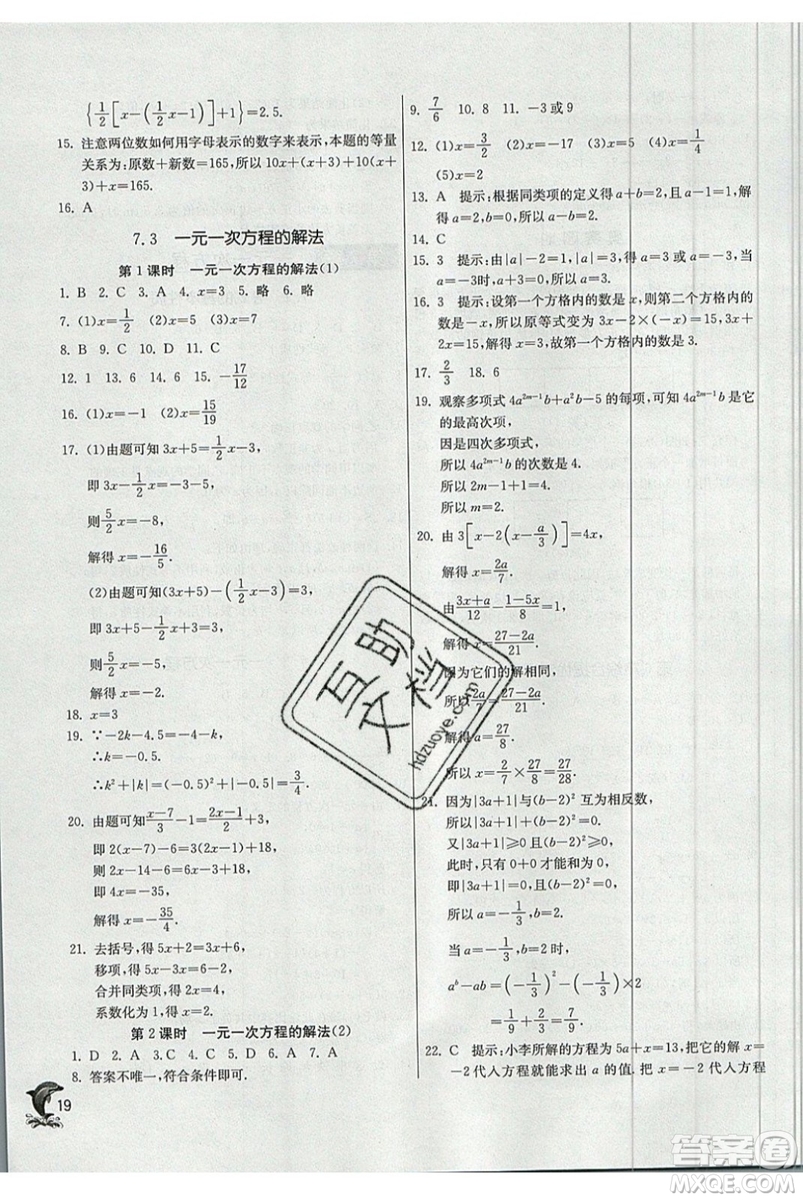 {1/2[x-(1/2x-1)]+1}=2.5.
15. 注意两位数如何用字母表示的数字来表示，本题的等量
关系为：原数+新数=165，所以 10x+(x+3)+10(x+
3)+x=165.
16. A
7.3 一元一次方程的解法
第 1 课时 一元一次方程的解法(1)
1. B 2. C 3. A 4. C 5. 略 6. 略
7. (1)x=1/2 (2)x=5 (3)x=7
8. B 9. C 10. D 11. C
12. 1 13. 6 14. 6 15. -17/12
16. (1)x=-1 (2)x=15/19
17. (1)由题可知 3x+5=1/2x-3，
即 3x-1/2x=-3-5，
则5/2x=-8，
解得 x=-16/5.
(2)由题可知(3x+5)-(1/2x-3)=3，
即 3x+5-1/2x+3=3，
则5/2x=-5，
解得 x=-2.
18. x=3
19. ∵-2k-4.5=-3.5，
∴k=-0.5.
∴k²+|k|=(-0.5)²+|-0.5|=3/4.
20. 由题可知x-7/3-1=2x-1/2+3，
即 2(x-7)-6=3(2x-1)+18，
即 2x-14-6=6x-3+18，
即 4x=-35，
解得 x=-35/4.
21. 去括号，得 5x+2=3x+6，
移项，得 5x-3x=6-2，
合并同类项，得 2x=4，
系数化为 1，得 x=2.
第 2 课时 一元一次方程的解法(2)
1. D 2. A 3. C 4. C 5. D 6. A 7. A
8. 答案不唯一，符合条件即可.
19
9. 7/6 10. 8 11. -3 或 9
12. (1)x=3/2 (2)x=5 (3)x=-4 (4)x=1/4
(5)x=2
13. A 提示：根据同类项的定义得 a+b=2，且 a-1=1，解
得 a=2，b=0，所以 a-b=2.
14. C
15. 3 提示：由|a|-2=1，解得 a=3 或 a=-3，且 a-3≠0，当
a=-3时，a+3=0，所以 a=3.
16. 3 提示：设第一个方格内的数是 x，则第二个方格内的
数是-x，所以原等式变为 3x-2×(-x)=15，3x+
2x=15，解得 x=3，故第一个方格内的数是 3.
17. 2/3 18. 6
19. 观察多项式 4a²ᵐ⁻¹b+a²b-5 的每项，可知 4a²ᵐ⁻¹b 是它
的最高次项，
因是四次多项式，
所以 4a²ᵐ⁻¹b 的次数是 4.
所以 2m-1+1=4，
所以 m=2.
20. 由 3[x-2(x-a/3)]=4x，
解得 x=2a/7.
由3x+a/12-1-5x/8=1，
解得 x=27-2a/21.
因为它们的解相同，
所以2a/7=27-2a/21，
解得 a=27/8.
所以 x=2/7×27/8=27/28.
21. 因为|3a+1|与(b-2)² 互为相反数，
所以|3a+1|+(b-2)²=0.
又|3a+1|≥0，(b-2)²≥0，
此时，只有 0+0 才能和为 0，
即|3a+1|=0，(b-2)²=0，
所以 a=-1/3，b=2.
当 a=-1/3，b=2 时，
aᵇ-ab=(-1/3)²-(-1/3)×2
=1/9+2/3=7/9.
22. C 提示：小李所解的方程为 5a+x=13，把它的解 x=
-2代人方程就能求出 a 的值. 把 x=-2 代人方程
互助
文档
hdzuoye.com
答案圈
MXQE.COM